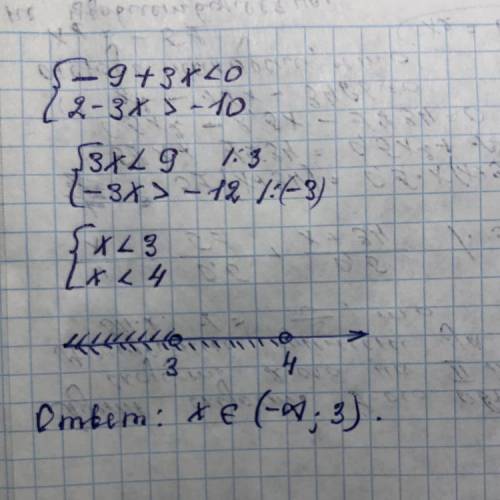 { - 9 + 3x < 0
{ 2 - 3x > - 10
{ 3x < 9 | : 3
{ - 3x > - 12 | : (-3)
{ x < 3
{ x < 4
3 4
Ответ: x ∈ (-∞; 3).